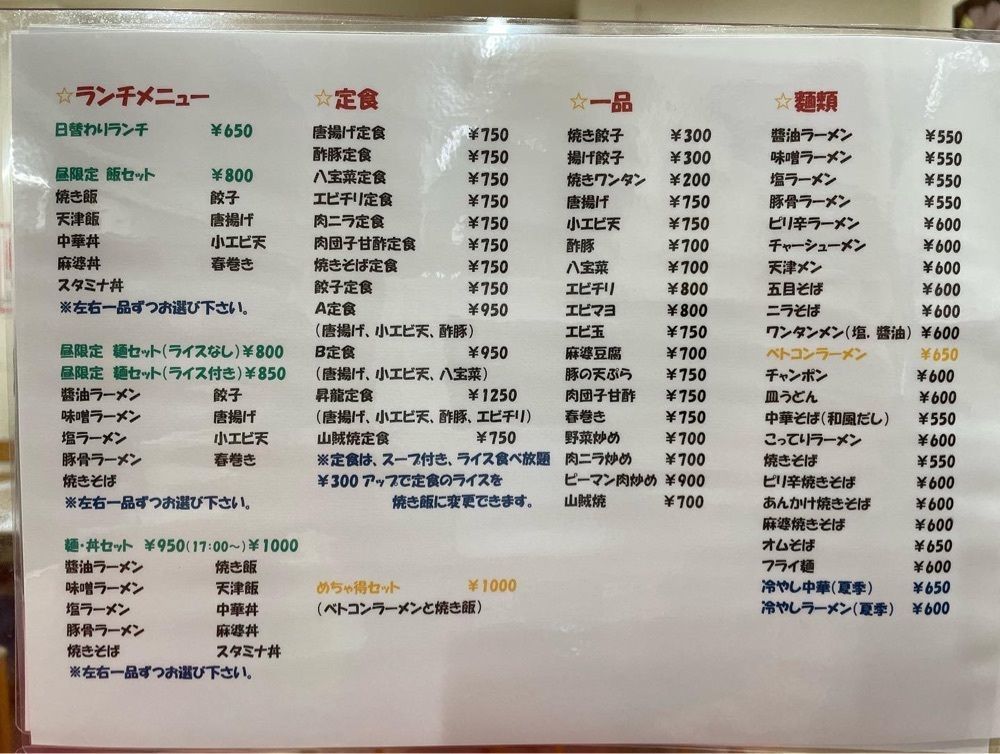 ☆ランチメニュー
日替わりランチ ¥650
昼限定 飯セット ¥800
焼き飯 餃子
天津飯 唐揚げ
中華丼 小エビ天
麻婆丼 春巻き
スタミナ丼
※左右一品ずつお選び下さい。
昼限定 麺セット(ライスなし)¥800
昼限定 麺セット(ライス付き)¥850
醬油ラーメン 餃子
味噌ラーメン 唐揚げ
塩ラーメン 小エビ天
豚骨ラーメン 春巻き
焼きそば
※左右一品ずつお選び下さい。
麺・丼セット ¥950(17:00~)¥1000
醬油ラーメン 焼き飯
味噌ラーメン 天津飯
塩ラーメン 中華丼
豚骨ラーメン 麻婆丼
焼きそば スタミナ丼
※左右一品ずつお選び下さい。
☆定食
唐揚げ定食 ¥750
酢豚定食 ¥750
八宝菜定食 ¥750
エビチリ定食 ¥750
肉ニラ定食 ¥750
肉団子甘酢定食 ¥750
焼きそば定食 ¥750
餃子定食 ¥750
A定食 ¥950
(唐揚げ、小エビ天、酢豚)
B定食 ¥950
(唐揚げ、小エビ天、八宝菜)
昇龍定食 ¥1250
(唐揚げ、小エビ天、酢豚、エビチリ)
山賊焼定食 ¥750
※定食は、スープ付き、ライス食べ放題
¥300アップで定食のライスを
焼き飯に変更できます。
めちゃ得セット ¥1000
(ベトコンラーメンと焼き飯)
☆一品
焼き餃子 ¥300
揚げ餃子 ¥300
焼きワンタン ¥200
唐揚げ ¥750
小エビ天 ¥750
酢豚 ¥700
八宝菜 ¥700
エビチリ ¥800
エビマヨ ¥800
エビ玉 ¥750
麻婆豆腐 ¥700
豚の天ぷら ¥750
肉団子甘酢 ¥750
春巻き ¥750
野菜炒め ¥700
肉ニラ炒め ¥700
ピーマン肉炒め ¥900
山賊焼 ¥700
☆麵類
醬油ラーメン ¥550
味噌ラーメン ¥550
塩ラーメン ¥550
豚骨ラーメン ¥550
ピリ辛ラーメン ¥600
チャーシューメン ¥600
天津メン ¥600
五目そば ¥600
ニラそば ¥600
ワンタンメン(塩,醬油) ¥600
ベトコンラーメン ¥650
チャンポン ¥600
皿うどん ¥600
中華そば(和風だし) ¥550
こってりラーメン ¥600
焼きそば ¥550
ピリ辛焼きそば ¥600
あんかけ焼きそば ¥600
麻婆焼きそば ¥600
オムそば ¥650
フライ麺 ¥600
冷やし中華(夏季) ¥650
冷やしラーメン(夏季) ¥600